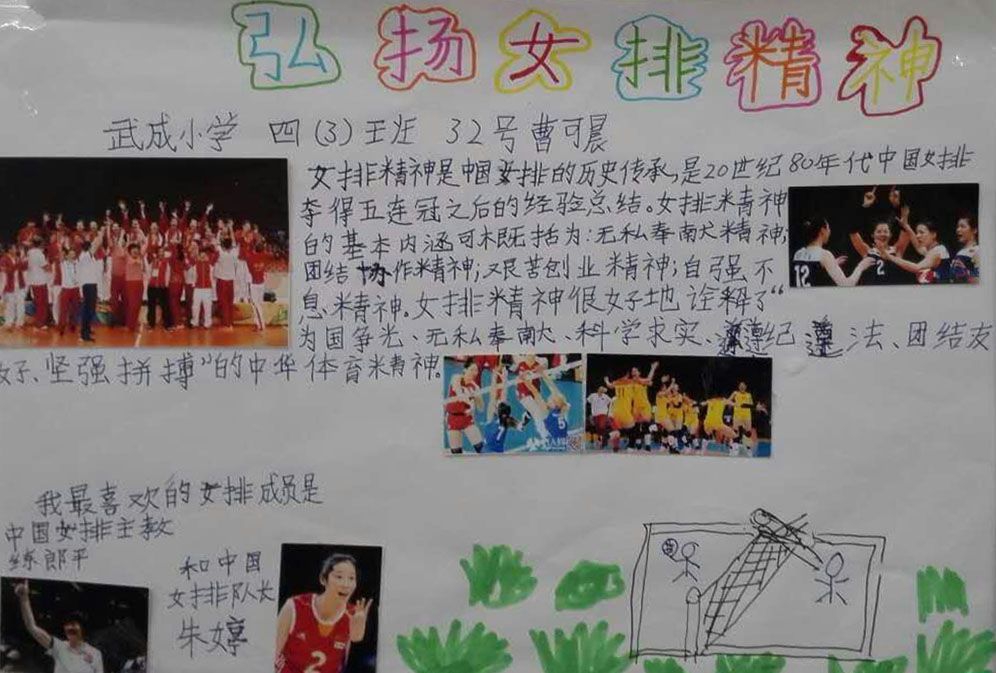 弘扬女排精神
武成小学 四(3)王班 32号曹可晨
女排精神是中国女排的历史传承,是20世纪80年代中国女排
夺得五连冠之后的经验总结。女排精神
的基本内涵可概括为:无私奉献精神;
团结协作精神;艰苦创业精神;自强不
息精神。女排精神很好地诠释了“
为国争光、无私奉献、科学求实、遵纪遵法、团结友
好、坚强拼搏”的中华体育精神。
12
2
7
5
我最喜欢的女排成员是
中国女排主教
练郎平
和中国
女排队长
朱婷
2